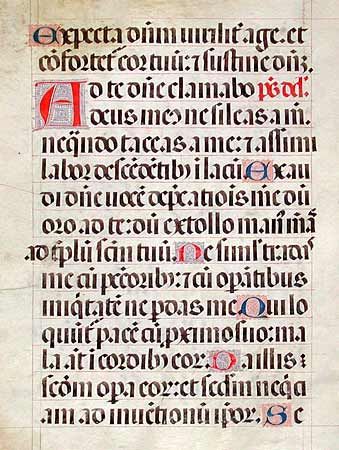 Expecta dn̄m viriliť age: et
cōfortet̃ cor tuū: ⁊ sustine dn̄ʒ.
Ad te dn̄e clamabo ps̄ dd̄.
deus me⁹ ne sileas a m̄.
neq̄ñdo taceas a me: ⁊ assimi
labor descēdētib⁹ i lacū. Exau
di dn̄e vocē dep̄catiōis mee dū
oro ad te: dū extollo man⁹ m̄a
ad tēplū sctm̄ tuū. Ne simĺ tradas
me cū peccorib⁹: ⁊ cū opantibus
iniq̇tatē ne pdas me. Qui loq̄
quūť pacē cū pximo suo: ma
la āt i cordib⁹ eor̄. Da illis
scdm̄ opa eor̄: et scdm̄ neq̇ci
am ad inuētionū ipor̄. Se